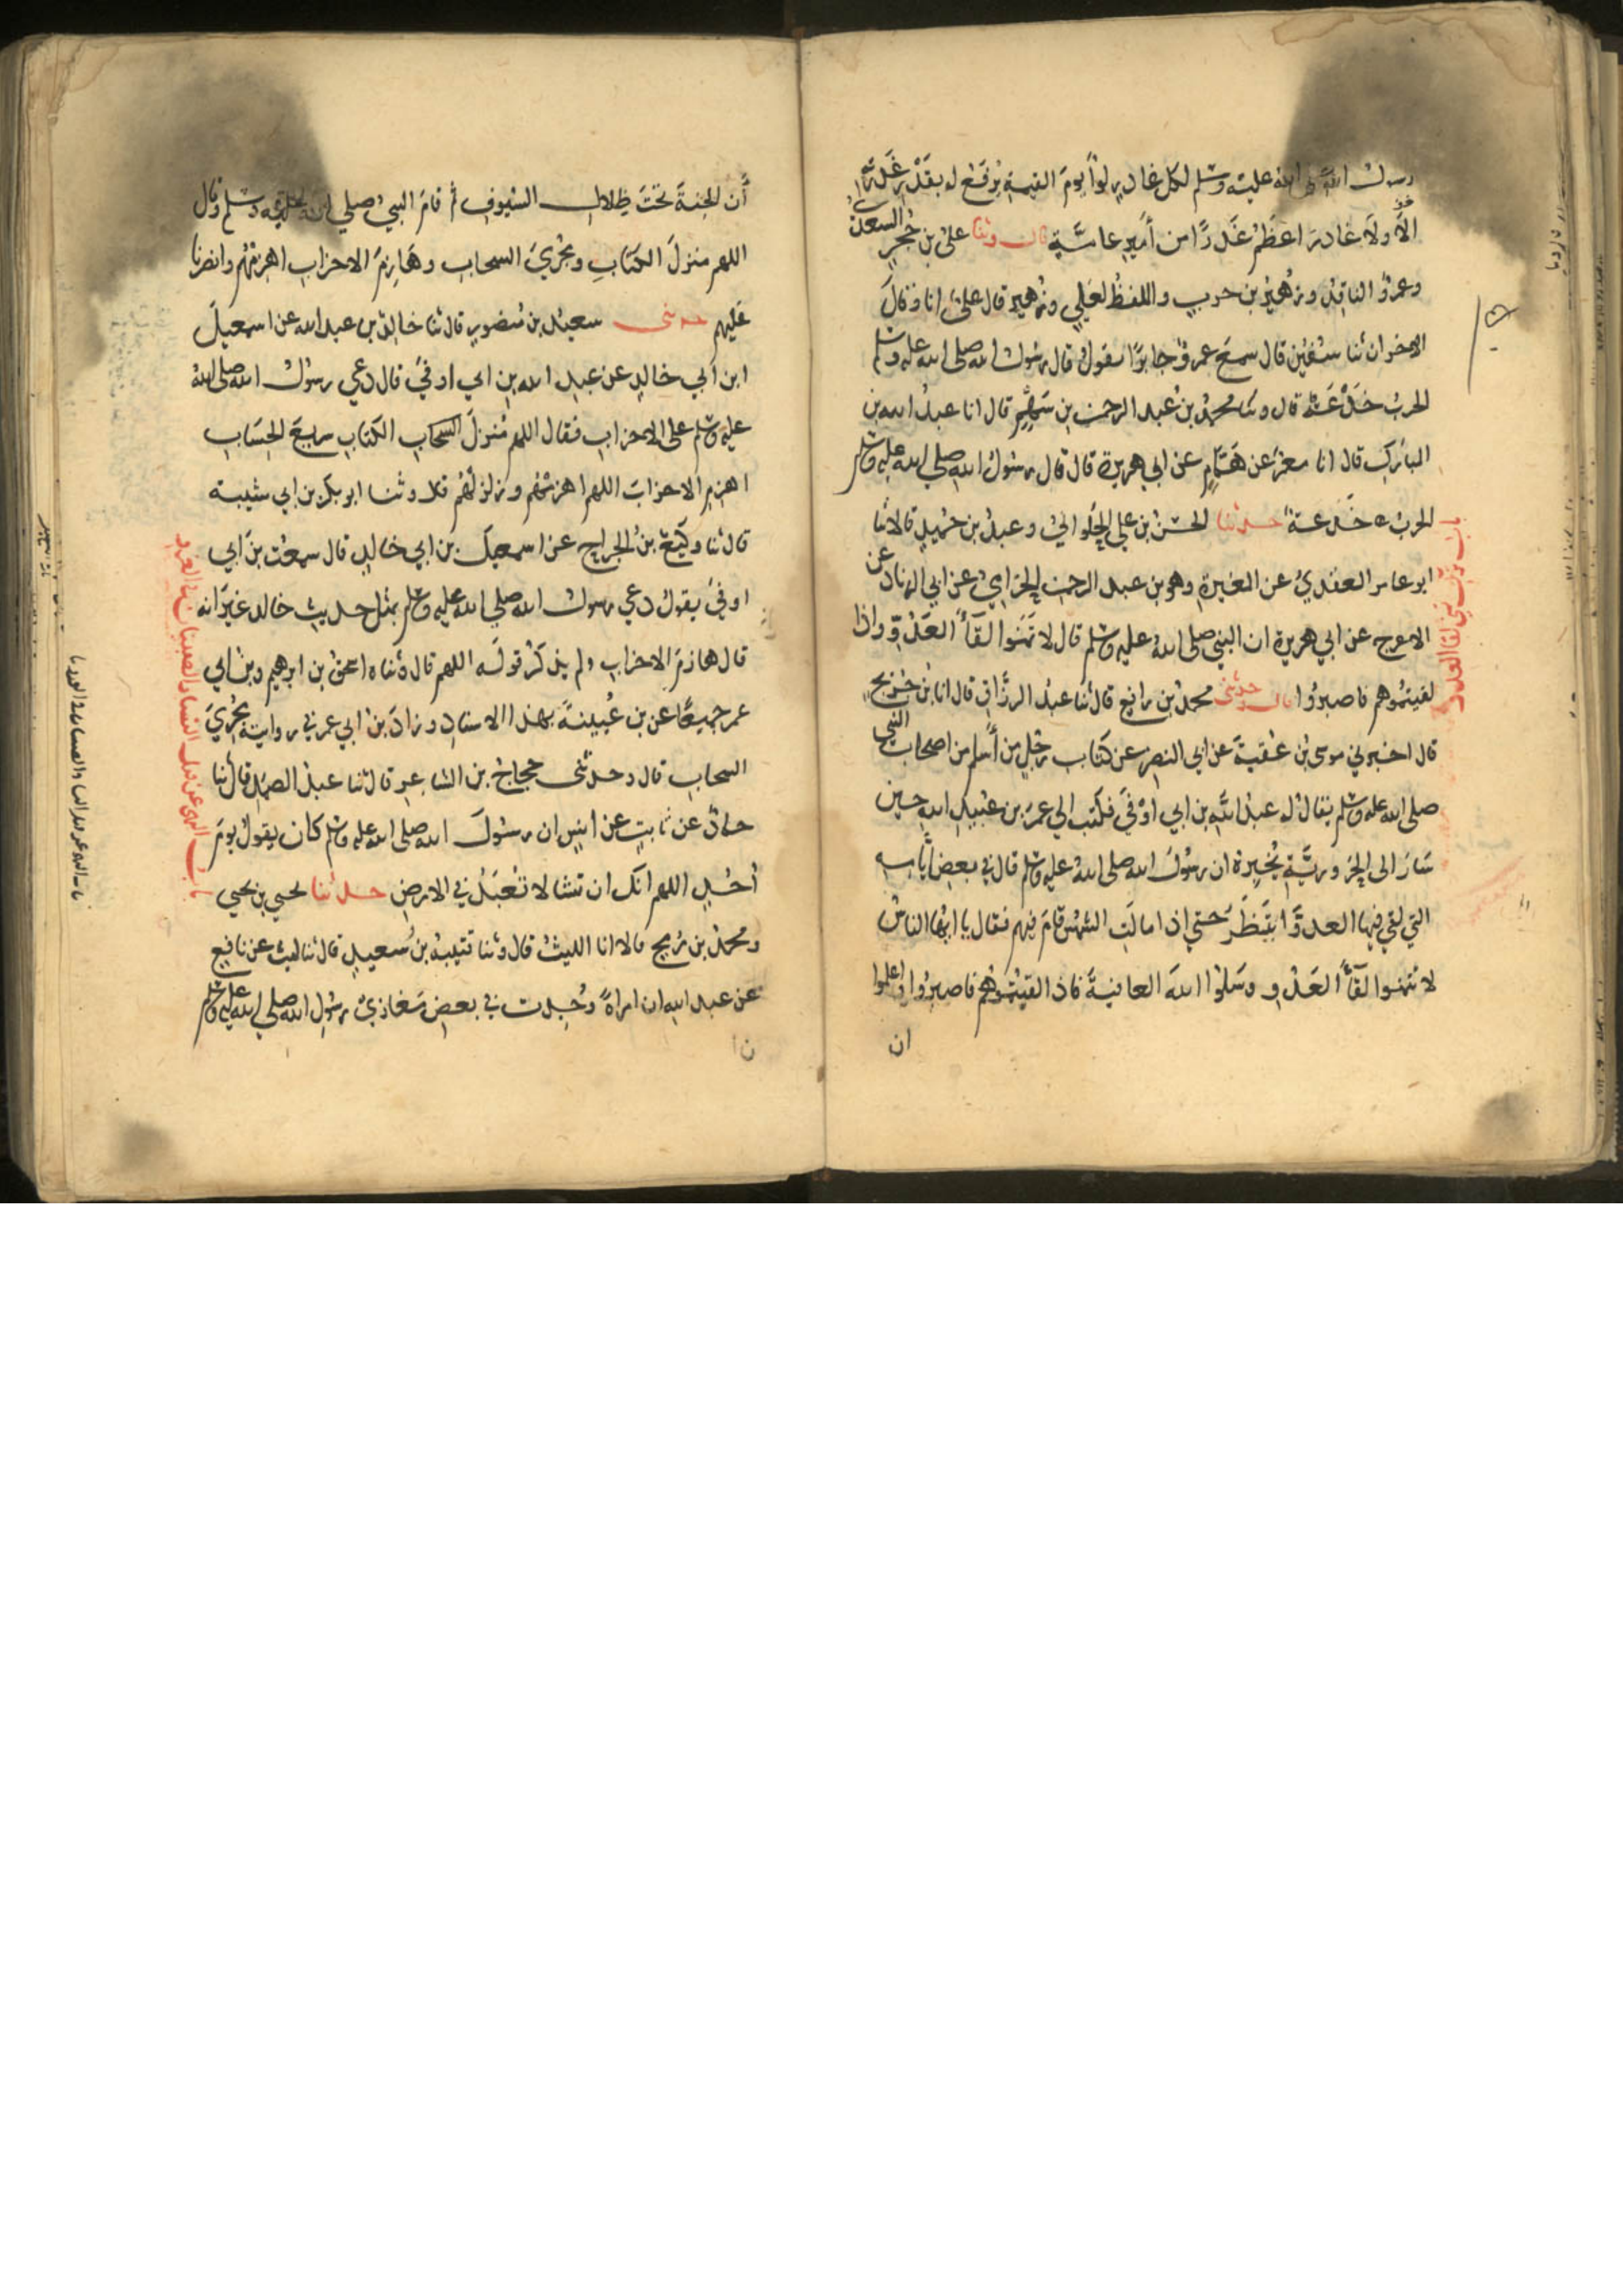 رسول الله صلى الله عليه وسلم لكل غادر لواً يوم القيمة يُرفَع له بقَدْرِ غَدْرَتِه
الَا ولَا غادرَ اعظَمُ غَدْرًا من أميرِ عامَّةٍ قال وثنا علىُ بن حُجرٍ السعدىُ
وعمرٌو الناقِدُ وزُهيرُ بن حربٍ واللفظُ لعَليٍ وزُهيرٍ قال علىٌ انا وقالَ
الاخران ثنا سُفيٰن قال سمعَ عمروٌ جابرًا يقولُ قال رسُولُ الله صلى الله عليه وسلم
الحربُ خَدْعَةٌ قال وثنا محمدُ بن عبد الرحمن بن سَهْمٍ قال انا عبدُ الله بن
المباركِ قال انا معمرٌ عن هَمَّامٍ عن ابي هريرة قال قال رسُولُ الله صلي الله عليه وسلم
الحربُ خَدعةٌ حدثنا الحسَنُ بن علي الحُلْوانيُ وعبدُ بن حُميدٍ قالا ثنا
ابو عامر العقَديُ عن المغيرةِ وهو بن عبد الرحمن الحِزاميُ عن ابي الزناد عن
الاعرج عن ابي هريرة ان النبي صلى اللهُ عليه وسلم قال لا تَمَنَّوا لقَآءَ العَدُوِّ واذا
لقيتمُوهم فاصبروُا قال وحدثنى محمدُ بن رافعٍ قال ثنا عبدُ الرزَّاقِ قال انا بنُ جُريجٍ
قال اخبرني موسى بنُ عُقبةَ عن ابي النضرِ عن كتاب رجُلٍ من أَسلم من اصحاب النبي
صلى الله عليه وسلم يقالُ له عبدُ اللهِ بن ابي اوْفَى فكتب الي عمرَ بن عُبيدِ الله حين
سَارَ الى الحَرُوريَّةِ يُخبِرهُ ان رسُولَ الله صلى اللهُ عليه وسلم كان في بعض أيامه
التي لقي فيها العدوَّ ينتَظِرُ حتي اذا مالَتِ الشمْسُ قامَ فيهم فقال يا ايُّها الناسُ
لا تتمنوا لقآءَ العَدُوِ وسَلُوا اللهَ العافيةَ فاذا لقيتُموُهم فاصبِروُا واعلموا
ان
باب ترك تمني لقا العدو
أَن الجنةَ تحتَ ظِلالِ السُّيوفِ ثم قامَ النبيُ صلي الله عليه وسلم وقال
اللهم منزلَ الكتابِ ومُجْرِيَ السحابِ وهَازِمَ الاحزابِ اهزِمْهُم وانصُرنا
عَليهم حدثنى سعيدُ بن مَنصُورٍ قال ثنا خالدُ بن عبد الله عن اسمعيلَ
ابن أبي خالدٍ عن عبدِ الله بن ابي اوفَى قال دعي رسُولُ الله صلى اللهُ
عليه وسلم على الاحزابِ فقال اللهم مُنزِلَ السحاب الكتابِ سريعَ الحِسَابِ
اهزمِ الاحزابَ اللهم اهزمْهُم وزلزلْهُم قال وثنا ابو بكر بن ابي شيبة
قال ثنا وكيعُ بنُ الجراحِ عن اسمعيلَ بن ابي خالدٍ قال سمعْت بنَ ابي
اوفىَ يقولُ دعي رسولُ الله صلي الله عليه وسلم بمثل حديث خالد غيرَ انه
قال هازمَ الاحزاب ولم يذكُرْ قولَه اللهم قال وثناه اسحقُ بن ابرهيم وبن ابي
عمر جميعًا عن بن عُيينةَ بهذا الاسنادِ وزادَ بنُ ابي عمر في روايته مُجْرِيَ
السحابِ قال وحدثنى حجاجُ بن الشاعرِ قال ثنا عبدُ الصمدِ قال ثنا
حمادٌ عن ثابتٍ عن انسٍ ان رسُولَ الله صلى الله عليه وسلم كان يقولُ يومَ
أحُدٍ اللهم انكَ ان تشا لا تُعْبَدُ في الارضِ حدثنا يحيي بن يحيي
ومحمدُ بن رُمحٍ قالا انا الليثُ قال وثنا قتيبةُ بن سُعيدٍ قال ثنا ليث عن نافعٍ
عن عبد اللهِ ان امراةً وُجِدت في بعضِ مَغازيْ رسُولِ الله صلي الله عليه وسلم
باب النهى عن قتل النساء والصبيان في الغزو